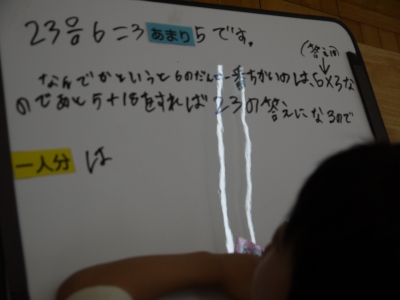 23÷6=3あまり5です。
(答え)
なんでかというと6のだんで一番ちかいのは、6×3な
のであと5+18をすれば23の答えになるので
一人分は